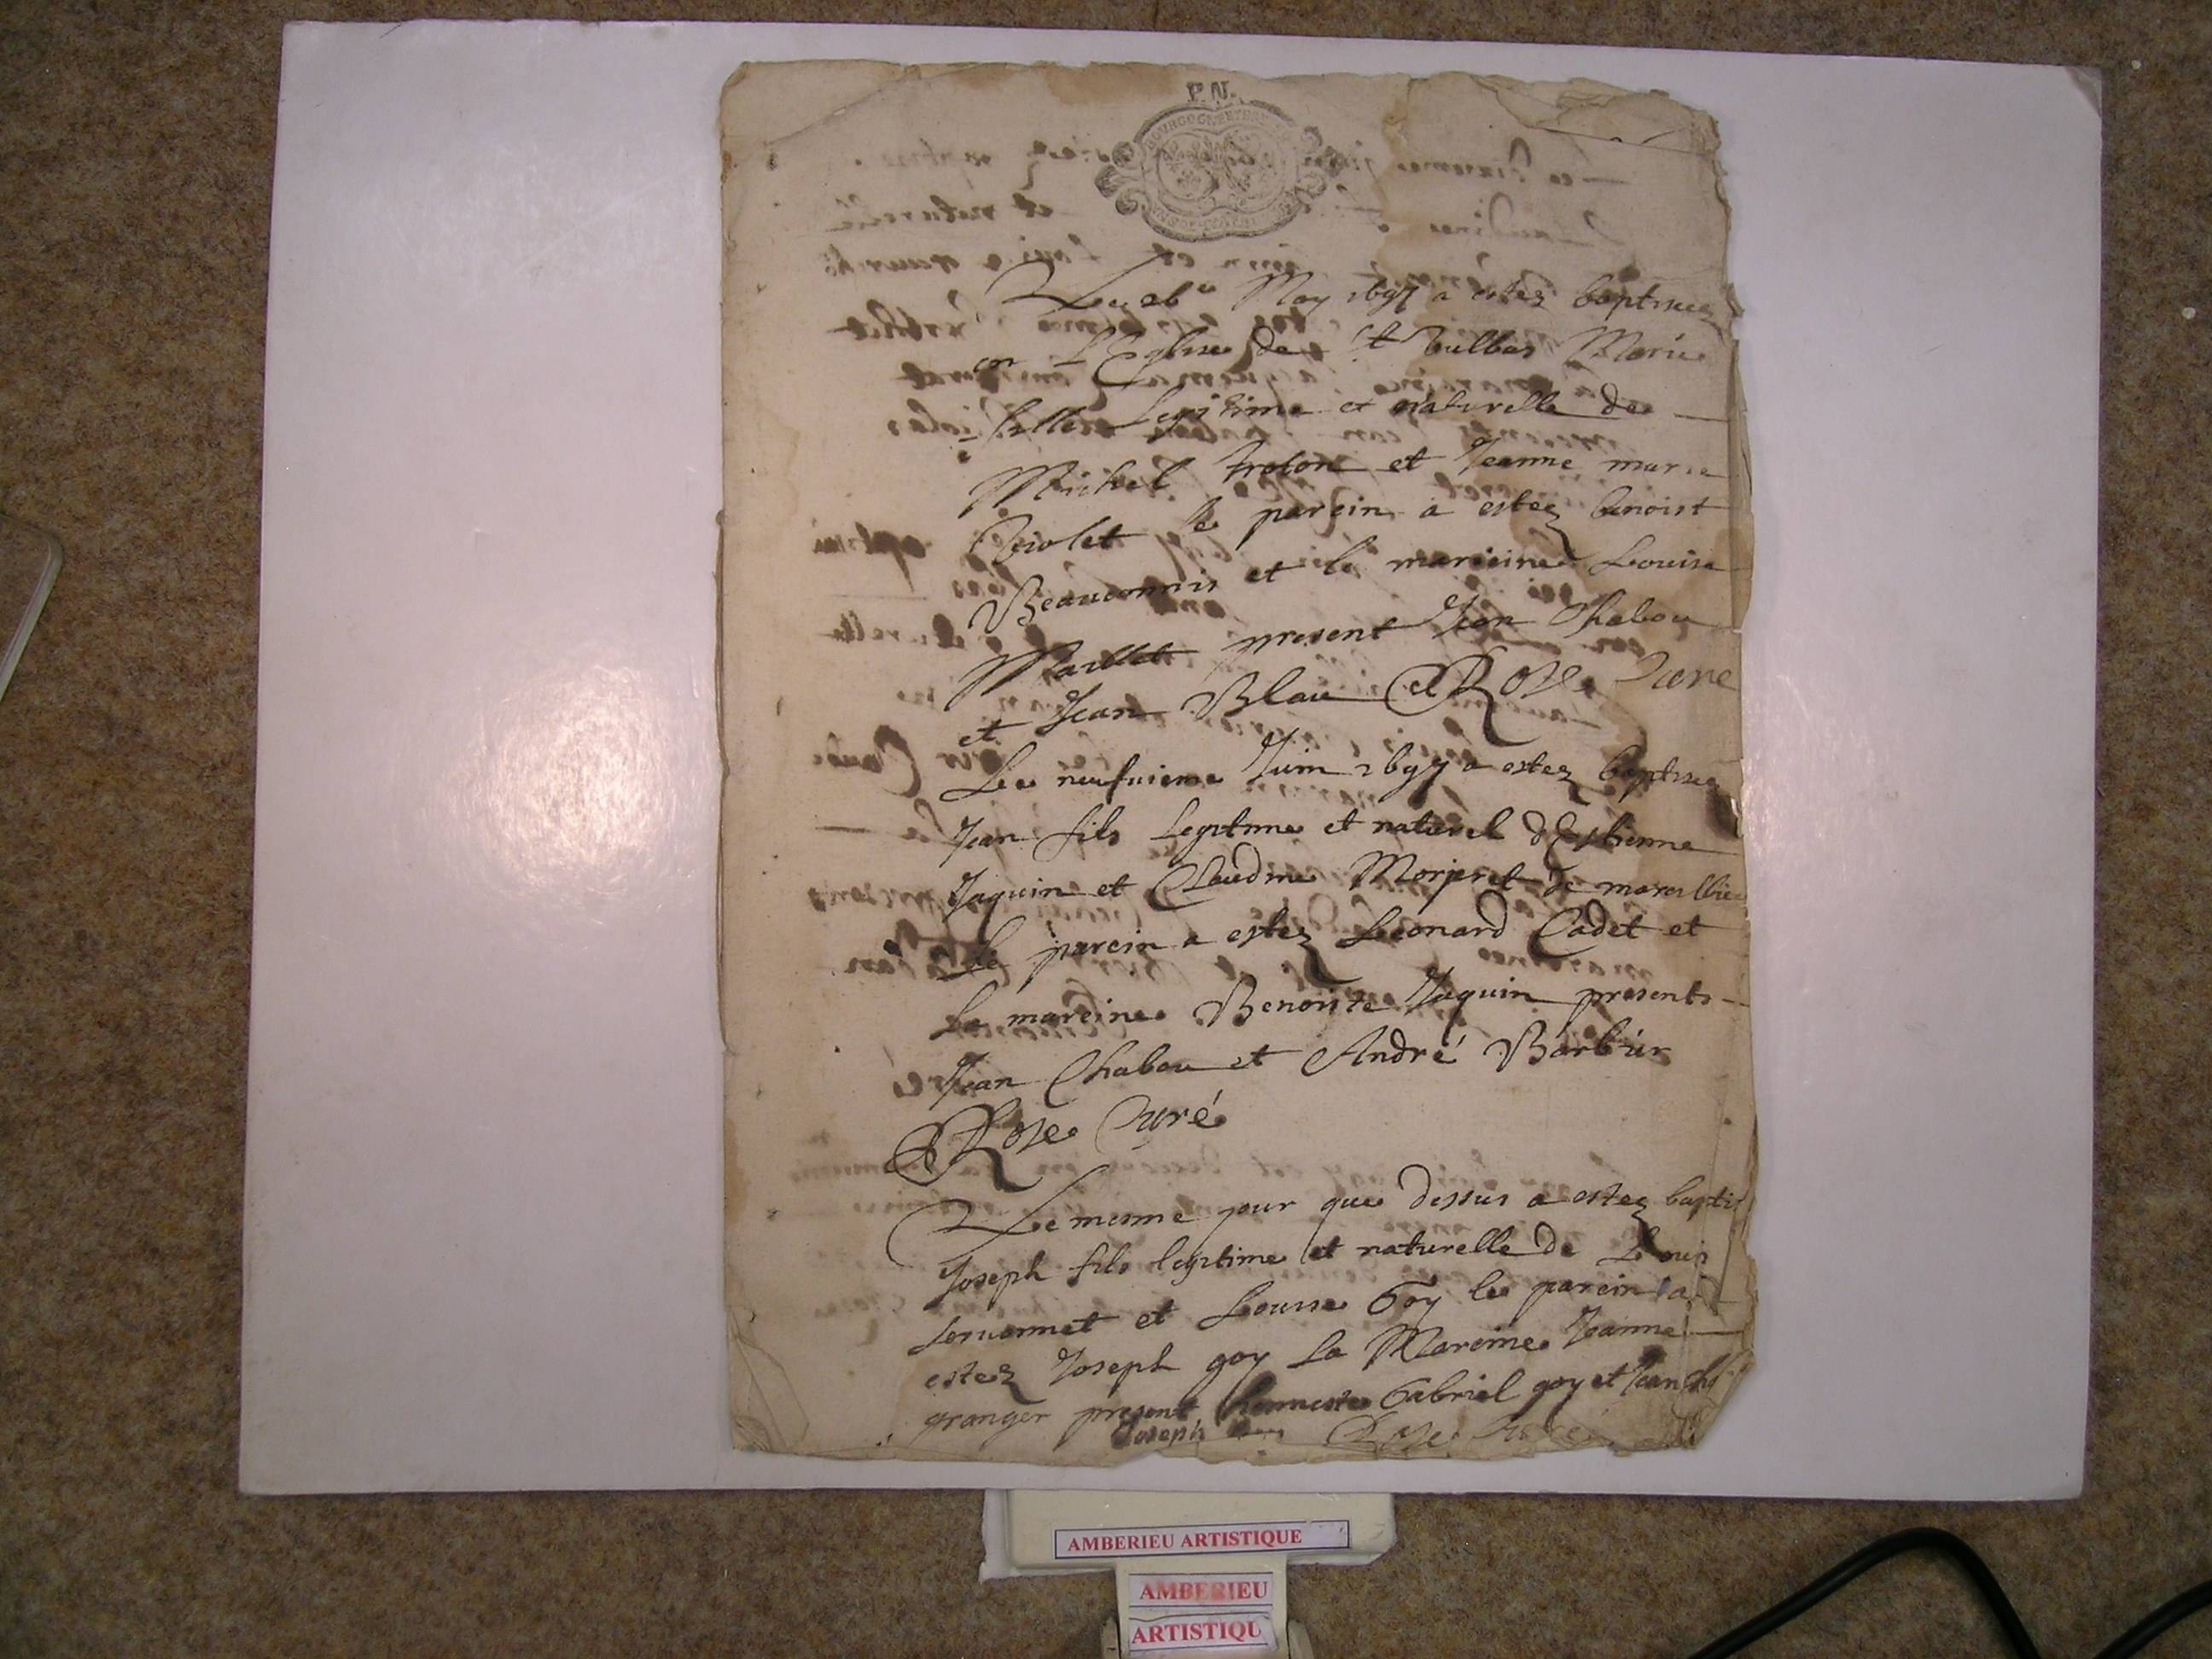 P.N.
Le 26e May 1697 a estez baptisee
en L'Eglise de St Vulbas Marie
fille Legitime et naturelle de
Michel trolon et Jeanne marie
Violet le parein a estez benoist
Beaucomis et la mareine Louise
Maillet present Jean Chabou
et Jean Blau Roze Curé
Le neufuieme Juin 1697 a estez baptise
Jean fils Legitime et naturel d'Estienne
Jaquin et Claudine Morjeret de
Le parein a estez Leonard Cadet et
La mareine Benoiste Jaquin presents
Jean Chabou et André Barbier
Roze Curé
Le mesme jour que dessus a estez bapti
Joseph fils legitime et naturelle de Louis
seruonnet et Louise Goy le parein a
estez Joseph goy La Mareine Jeanne
granger present honneste Gabriel goy et Jean
Joseph Roze Curé
AMBERIEU ARTISTIQUE
AMBERIEU
ARTISTIQU